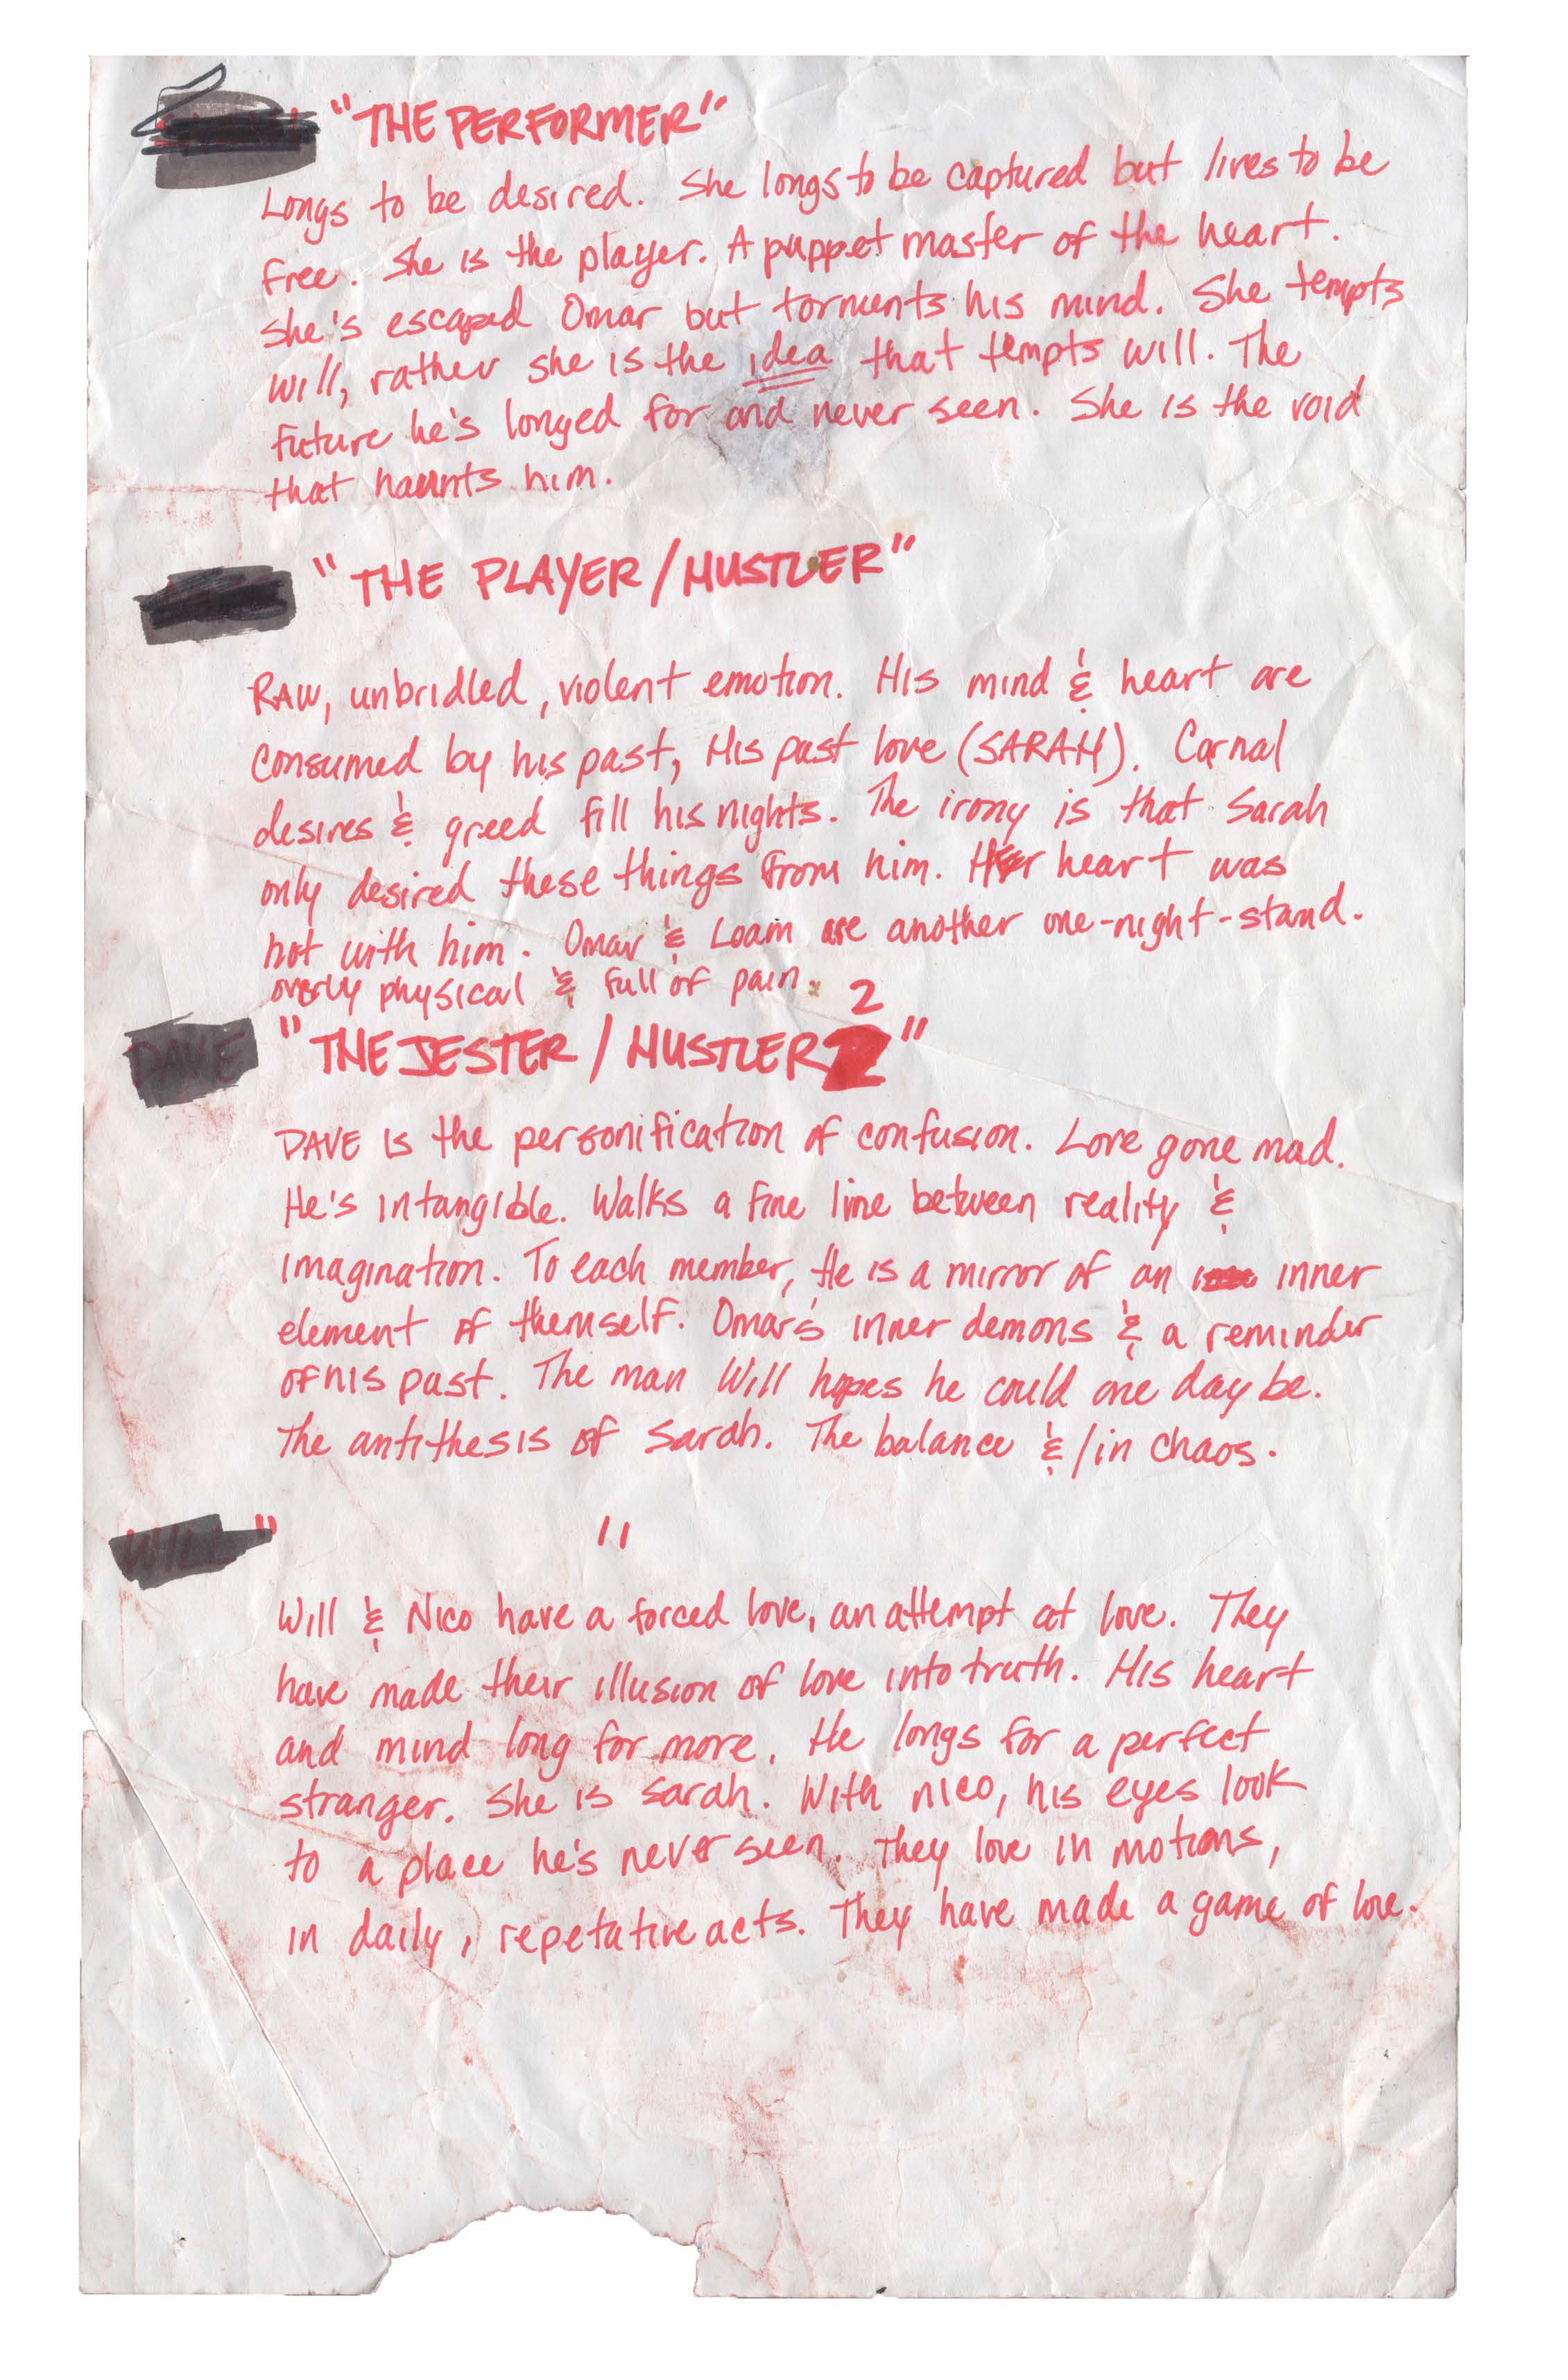 "THE PERFORMER"
Longs to be desired. She longs to be captured but lives to be
free. She is the player. A puppet master of the heart.
She's escaped Omar but torments his mind. She tempts
Will, rather she is the idea that tempts will. The
future he's longed for and never seen. She is the void
that haunts him.
"THE PLAYER/HUSTLER"
RAW, unbridled, violent emotion. His mind & heart are
consumed by his past, His past love (SARAH). Carnal
desires & greed fill his nights. The irony is that Sarah
only desired these things from him. Her heart was
not with him. Omar & Loam are another one-night-stand.
overly physical & full of pain.
2
DAVE "THE JESTER/HUSTLER 2"
DAVE is the personification of confusion. Love gone mad.
He's intangible. Walks a fine line between reality &
imagination. To each member, He is a mirror of an inner
element of themself. Omar's inner demons & a reminder
of his past. The man Will hopes he could one day be.
The antithesis of Sarah. The balance &/in chaos.
WILL " "
Will & Nico have a forced love, an attempt at love. They
have made their illusion of love into truth. His heart
and mind long for more. He longs for a perfect
stranger. She is Sarah. With nico, his eyes look
to a place he's never seen. They love in motions,
in daily, repetative acts. They have made a game of love.